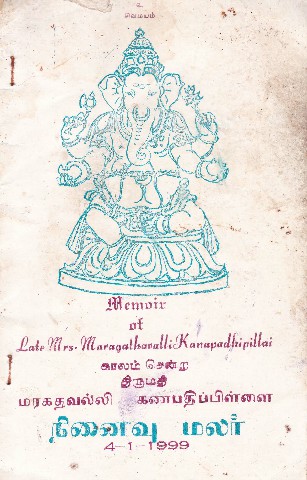 உ
சிவமயம்
Memoir
of
Late Mrs. Maragathavalli Kanapadhipillai
காலம் சென்ற
திருமதி
மரகதவல்லி கணபதிப்பிள்ளை
நினைவு மலர்
4-1-1999